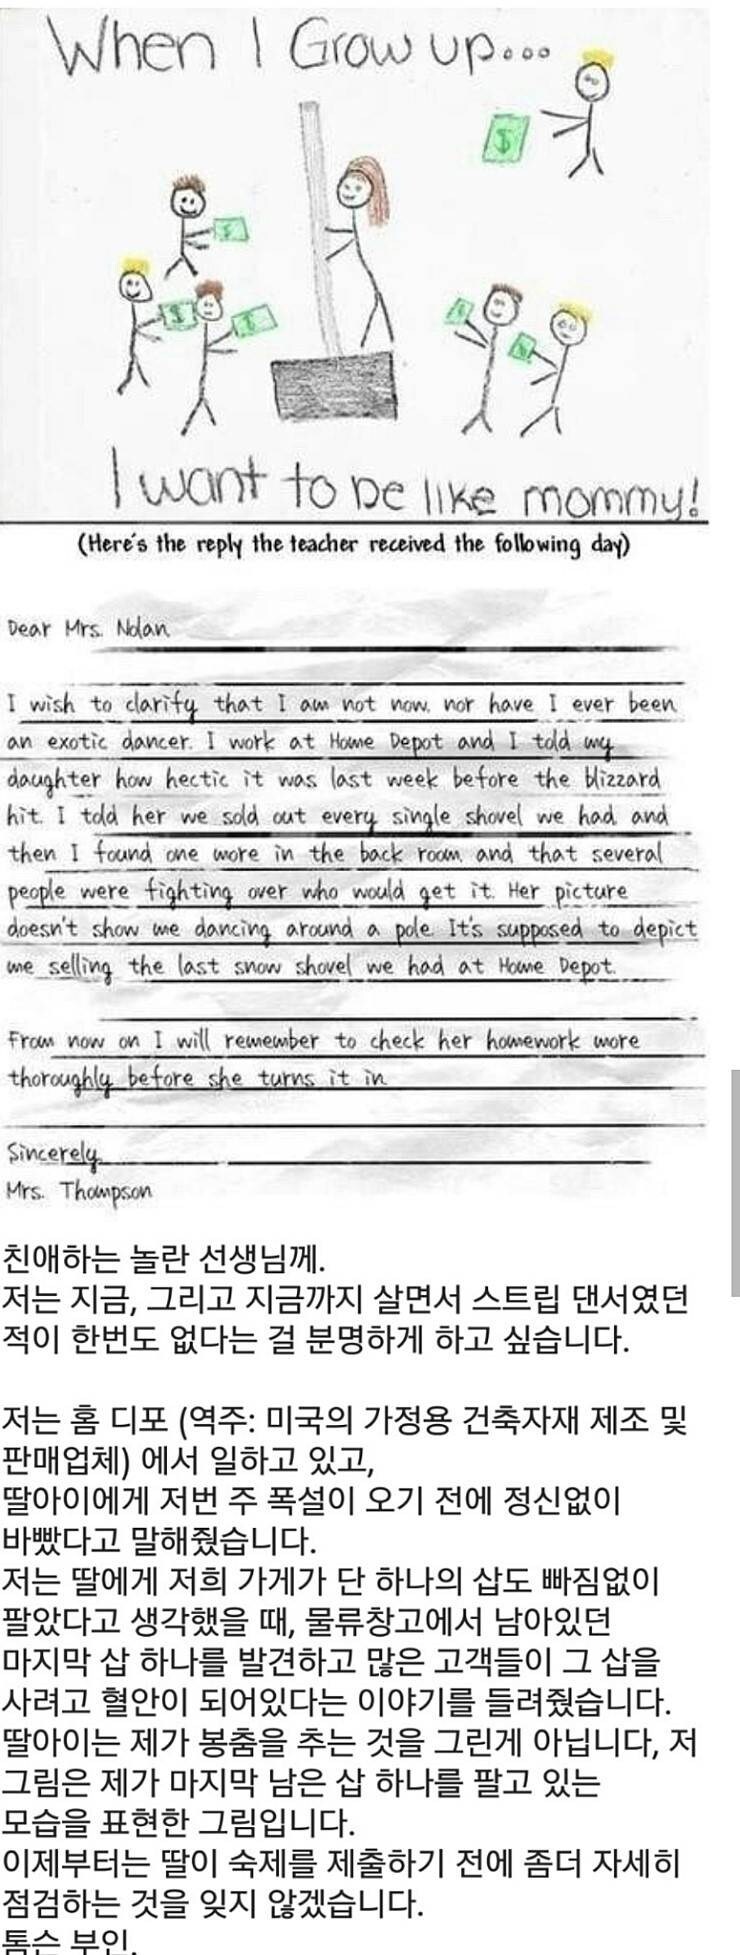 When I Grow up...
$
$
$
$
$
$
I want to be like mommy!
(Here's the reply the teacher received the following day)
Dear Mrs. Nolan
I wish to clarify that I am not now, nor have I ever been
an exotic dancer. I work at Home Depot and I told my
daughter how hectic it was last week before the blizzard
hit. I told her we sold out every single shovel we had and
then I found one more in the back room and that several
people were fighting over who would get it. Her picture
doesn't show me dancing around a pole. It's supposed to depict
me selling the last snow shovel we had at Home Depot.
From now on I will remember to check her homework more
thoroughly before she turns it in
Sincerely,
Mrs. Thompson
친애하는 놀란 선생님께.
저는 지금, 그리고 지금까지 살면서 스트립 댄서였던
적이 한번도 없다는 걸 분명하게 하고 싶습니다.
저는 홈 디포 (역주: 미국의 가정용 건축자재 제조 및
판매업체) 에서 일하고 있고,
딸아이에게 저번 주 폭설이 오기 전에 정신없이
바빴다고 말해줬습니다.
저는 딸에게 저희 가게가 단 하나의 삽도 빠짐없이
팔았다고 생각했을 때, 물류창고에서 남아있던
마지막 삽 하나를 발견하고 많은 고객들이 그 삽을
사려고 혈안이 되어있다는 이야기를 들려줬습니다.
딸아이는 제가 봉춤을 추는 것을 그린게 아닙니다, 저
그림은 제가 마지막 남은 삽 하나를 팔고 있는
모습을 표현한 그림입니다.
이제부터는 딸이 숙제를 제출하기 전에 좀더 자세히
점검하는 것을 잊지 않겠습니다.
톰슨 부인.